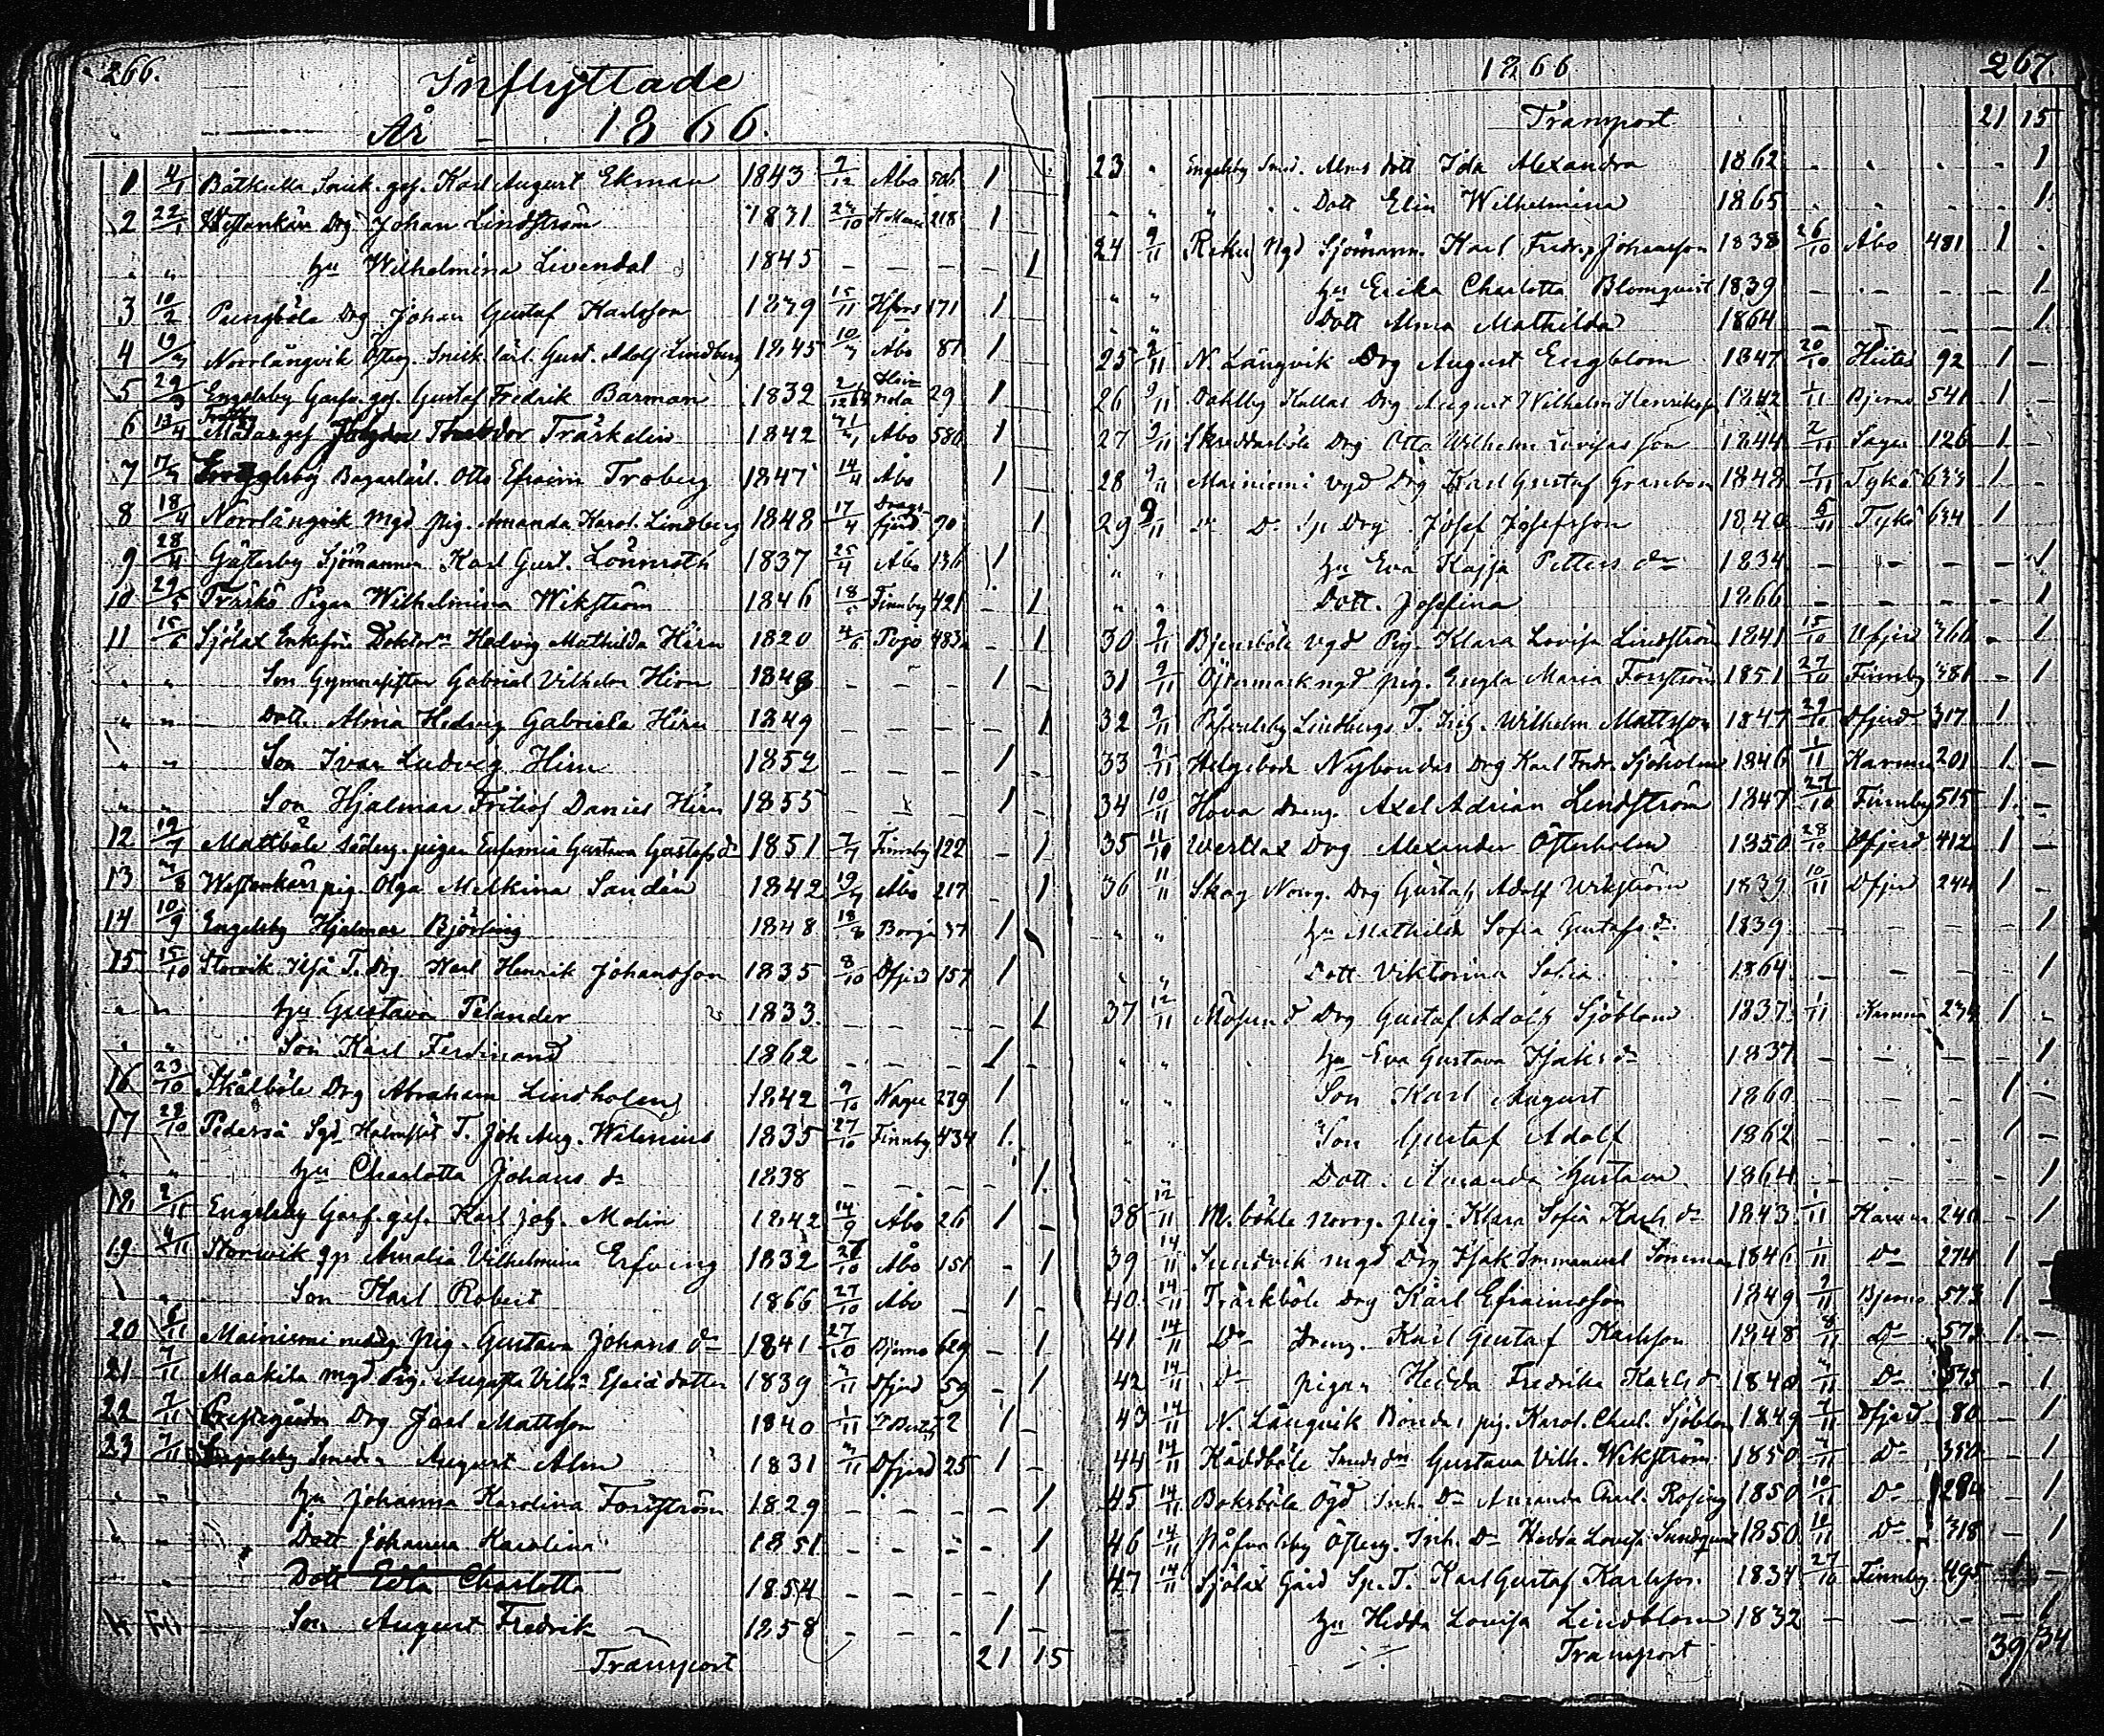 266.
Inflyttade
År - 1866.
1 4/1 Båtkulla Snick. ges. Karl August Ekman 1843 7/12 Åbo 506 1
2 22/1 Westankärr Drg Johan Lindström 1831 24/10 218 1
" " hu Wilhelmina Livendal 1845 - - - - 1
3 10/2 Pungböle Drg Johan Gustaf Karlsson 1839 15/11 Hfors 171 1
4 19/3 Norrlångvik Österg. Snick. lärl. Gust. Adolf Lindberg 1845 10/3 Åbo 81 1
5 29/3 Engelsby Garfv. ges. Gustaf Fredrik Barman 1832 29 1
6 13/4 Målareges. Träskelin 1842 Åbo 580 1
7 17/4 Engelsby Bagarlärl. Otto Efraim Troberg 1847 14/4 Åbo 1
8 18/4 Norrlångvik mgd pig. Amanda Karol. Lindberg 1848 17/4 Dragsfjerd 90 1
9 28/4 Gästerby Sjömannen Karl Gust. Lönnroth 1837 25/4 Åbo 136 1
10 29/5 Träskö Pigan Wilhelmina Wikström 1846 18/5 Finnby 421 - 1
11 15/6 Sjölax Enkefru Doktor Hedvig Mathilda Hirn 1820 4/6 Pojo 483 - 1
" " Son Gymnasisten Gabriel Vilhelm Hirn 1848 - - - 1
" " Dott. Alma Hedvig Gabriella Hirn 1849 - - - - 1
" " Son Ivar Ludvig Hirn 1852 - - - 1
" " Son Hjalmar Fritiof Daniel Hirn 1855 - - - 1
12 19/7 Mattböle Söderg. pigan Eufemia Gustava Gustafsdr 1851 7/7 Finnby 122 - 1
13 Westankärr pig. Olga Melkina Sandén 1842 19/7 Åbo 217 - 1
14 10/9 Engelsby Hjalmar Björling 1848 18/8 Borgå 37 1
15 15/10 Storvik T. Drg. Karl Henrik Johansson 1835 8/10 Dfjerd 157 1
" " hu Gustava Telander 1833 - - - - 1
" " Son Karl Ferdinand 1862 - - - 1
16 23/10 Skålböle Drg Abraham Lindholm 1842 9/10 Nagu 239 1
17 28/10 Pederså Sgd T. Joh. Aug. Walenius 1835 27/10 Finnby 434 1
" " hu Charlotta Johans dr 1838 - - - - 1
18 2/11 Engelsby Garf. ges. Karl Joh. Malin 1842 14/9 Åbo 26 1 -
19 4/11 Norrvik Amalia Vilhelmina Erfving 1832 26/10 Åbo 151 - 1
" " Son Karl Robert 1866 27/10 Åbo - 1 -
20 6/11 Mainiemi pig. Gustava Johans dr 1841 27/10 Bjerno 629 - 1
21 7/11 Maakila mgd Pig. Augusta Vilh. Esaiä dotter 1839 3/11 Dfjerd 59 - 1
22 7/11 Prestgården Drg Joel Mattsson 1840 1/11 2 1 -
23 7/11 Engelsby Smed. August Alm 1831 3/11 Dfjerd 25 1 -
" " hu Johanna Karolina Forsström 1829 - - - - 1
" " Dott Johanna Karolina 1851 - - - - 1
" " Dott Edla Charlotta 1854 - - - - 1
Son August Fredrik 1858 - - - 1 -
Transport 21 15
1866
267.
Transport 21 15
23 " Engelsby Smed. Alms dott Ida Alexandra 1862 " " " - 1
" " " " Dott Elin Wilhelmina 1865 " " " " 1
24 9/11 Reku Ngd Sjöman. Karl Fredr. Johansson 1838 26/10 Åbo 481 1 -
" " hu Erika Charlotta Blomqvist 1839 - - - - 1
" " Dott Alma Mathilda 1864 - - - - 1
25 9/11 N. Långvik Drg August Engblom 1847 20/10 Hiitis 92 1 -
26 9/11 Dahlby Kullas Drg August Wilhelm Henriksson 1842 1/11 Bjerno 541 1 -
27 9/11 Skreddarböle Drg Otto Wilhelm Lovisas son 1844 2/11 Sagu 126 1 -
28 9/11 Mainiemi vgd Drg Karl Gustaf Granbom 1848 7/11 Tykö 633 1 -
29 9/11 Do Drg Josef Josefsson 1840 6/11 Tykö 634 1
" " hu Eva Kajsa Petters dr 1834 - - - - 1
" " Dott. Josefina 1866 - - - - 1
30 9/11 Bjensböle vgd Pig. Klara Lovisa Lindström 1841 15/10 Ufjerd 366 - 1
31 9/11 Öjenmark ngd pig. Engla Maria Forsström 1851 27/10 Finnby 481 - 1
32 9/11 Påfvalsby Lindbergs T. Wilhelm Mattsson 1847 29/10 Dfjerd 317 1
33 9/11 Helgeboda Nybondas Drg Karl Fredr. Sjöholm 1846 1/11 Karuna 201 1 -
34 10/11 Hova Dreng. Axel Adrian Lindström 1847 27/10 Finnby 515 1 -
35 11/11 Wertlax Drg Alexander Österholm 1850 28/10 Dfjerd 412 1 -
36 11/11 Skog Norrg. Drg Gustaf Adolf Wikström 1839 10/11 Dfjerd 244 1 -
" " hu Mathilda Sofia Gustafs dr 1839 - - - - 1
" " Dott Viktorina Sofia 1864 - - - - 1
37 12/11 Mösund Drg Gustaf Adolf Sjöblom 1837 1/11 Karuna 234 1 -
" " hu Eva Gustava Isaks dr 1837 - - - - 1
" " Son Karl August 1860 1 -
" " Son Gustaf Adolf 1862 - - - 1 -
" " Dott. Amanda Gustava 1864 - - - - 1
38 12/11 M. böhle norrg. pig. Klara Sofia Karls dr 1843 1/11 Karuna 240 - 1
39 14/11 Sundvik mgd Drg Isak Immanuel Sommar 1846 1/11 Do 274 1 -
40 14/11 Träskböle Drg Karl Efraimsson 1849 9/11 Bjerno 573 1 -
41 14/11 Do Dreng. Karl Gustaf Karlsson 1848 8/11 Do 573 1 -
42 14/11 Do pigan Hedda Fredrika Karls dr 1840 Do 575 - 1
43 14/11 N. Långvik Bondas pig. Karol. Charl. Sjöblom 1849 7/11 Dfjerd 80 - 1
44 14/11 Råddböle Smeds dr Gustava Vilh. Wikström 1850 Do 390 - 1
45 14/11 Boksböle Ögd Inh. Dr Amanda Charl. Rosing 1850 10/11 Do 284 - 1
46 14/11 Påfvalsby Österg. Inh. Dr Hedda Lovisa Sundqvist 1850 12/11 Do 318 - 1
47 14/11 Sjölax Gård Sp. T. Karl Gustaf Karlsson 1834 27/10 Finnby 495 1 -
hu Hedda Lovisa Lindblom 1832 - - - - 1
Transport 39 34